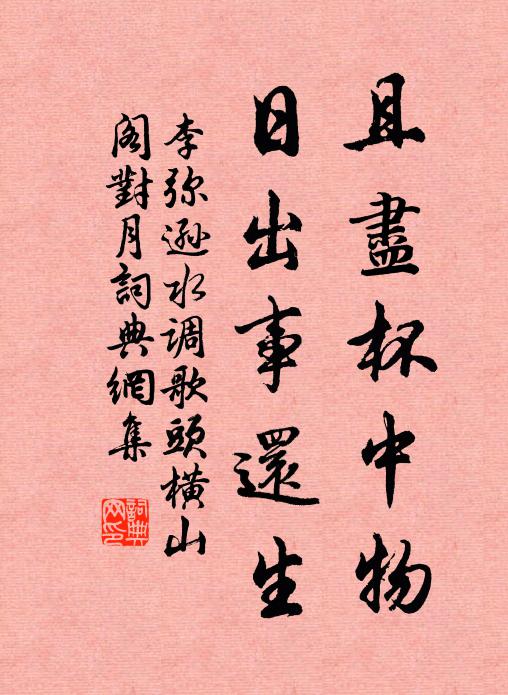 且盡杯中物
日出事還生
李弥遜水调歌頭橫山
阁對月詞典網集
詞典网印